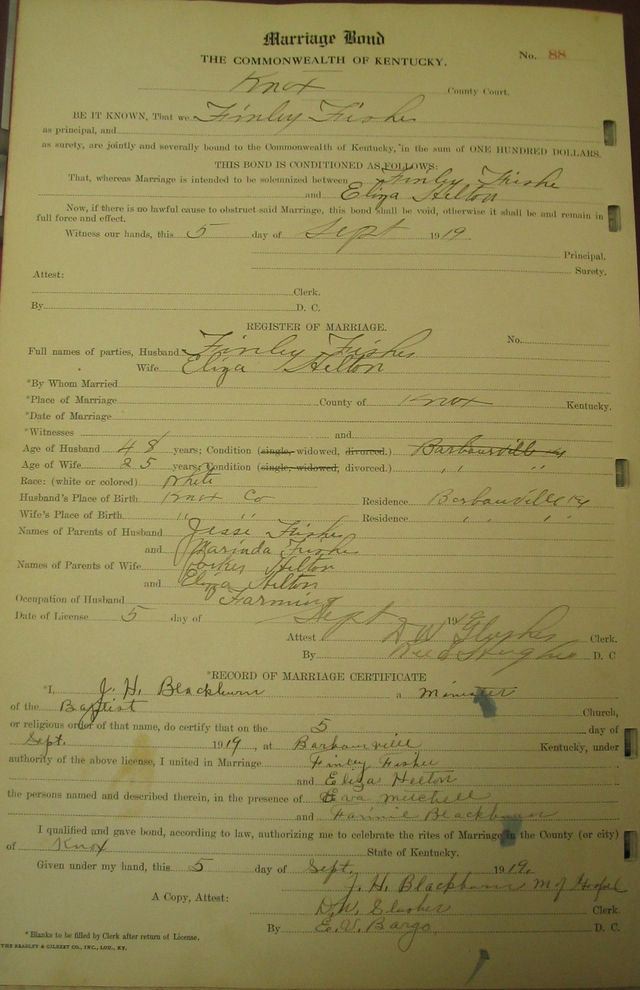 Marriage Bond
No. 88
THE COMMONWEALTH OF KENTUCKY.
Knox County Court.
BE IT KNOWN, That we Finley Fisher
as principal, and
as surety, are jointly and severally bound to the Commonwealth of Kentucky, in the sum of ONE HUNDRED DOLLARS.
THIS BOND IS CONDITIONED AS FOLLOWS:
That, whereas Marriage is intended to be solemnized between Finley Fishe
and Eliza Hilton
Now, if there is no lawful cause to obstruct said Marriage, this bond shall be void, otherwise it shall be and remain in
full force and effect.
Witness our hands, this 5 day of Sept 1919
Principal.
Surety.
Attest:
Clerk.
By D. C.
REGISTER OF MARRIAGE.
No.
Full names of parties, Husband Finley Fisher
Wife Eliza Hilton
*By Whom Married
*Place of Marriage County of Knox Kentucky.
*Date of Marriage
*Witnesses and
Age of Husband 48 years; Condition (single, widowed, divorced.) Barbourville Ky
Age of Wife 25 years; Condition (single, widowed, divorced.) " "
Race: (white or colored) White
Husband's Place of Birth Knox Co Residence Barbourville Ky
Wife's Place of Birth " " Residence " " " "
Names of Parents of Husband Jesse Fisher
and Marinda Fisher
Names of Parents of Wife Hilton
and Eliza Hilton
Occupation of Husband Farming
Date of License 5 day of Sept 19
Attest D. W. Slusher Clerk.
By D. C
*RECORD OF MARRIAGE CERTIFICATE
*I, J. H. Blackburn a Minister
of the Baptist Church,
or religious order of that name, do certify that on the 5 day of
Sept. 1919, at Barbourville Kentucky, under
authority of the above license, I united in Marriage Finley Fisher
and Eliza Helton
the persons named and described therein, in the presence of Eva Mitchell
and Fannie Blackburn
I qualified and gave bond, according to law, authorizing me to celebrate the rites of Marriage in the County (or city)
of Knox State of Kentucky.
Given under my hand, this 5 day of Sept. 1919.
J. H. Blackburn M of Gospel
A Copy, Attest: D. W. Slusher Clerk.
By E. V. Bargo. D. C.
*Blanks to be filled by Clerk after return of License.
THE BRADLEY & GILBERT CO., INC., LOU., KY.